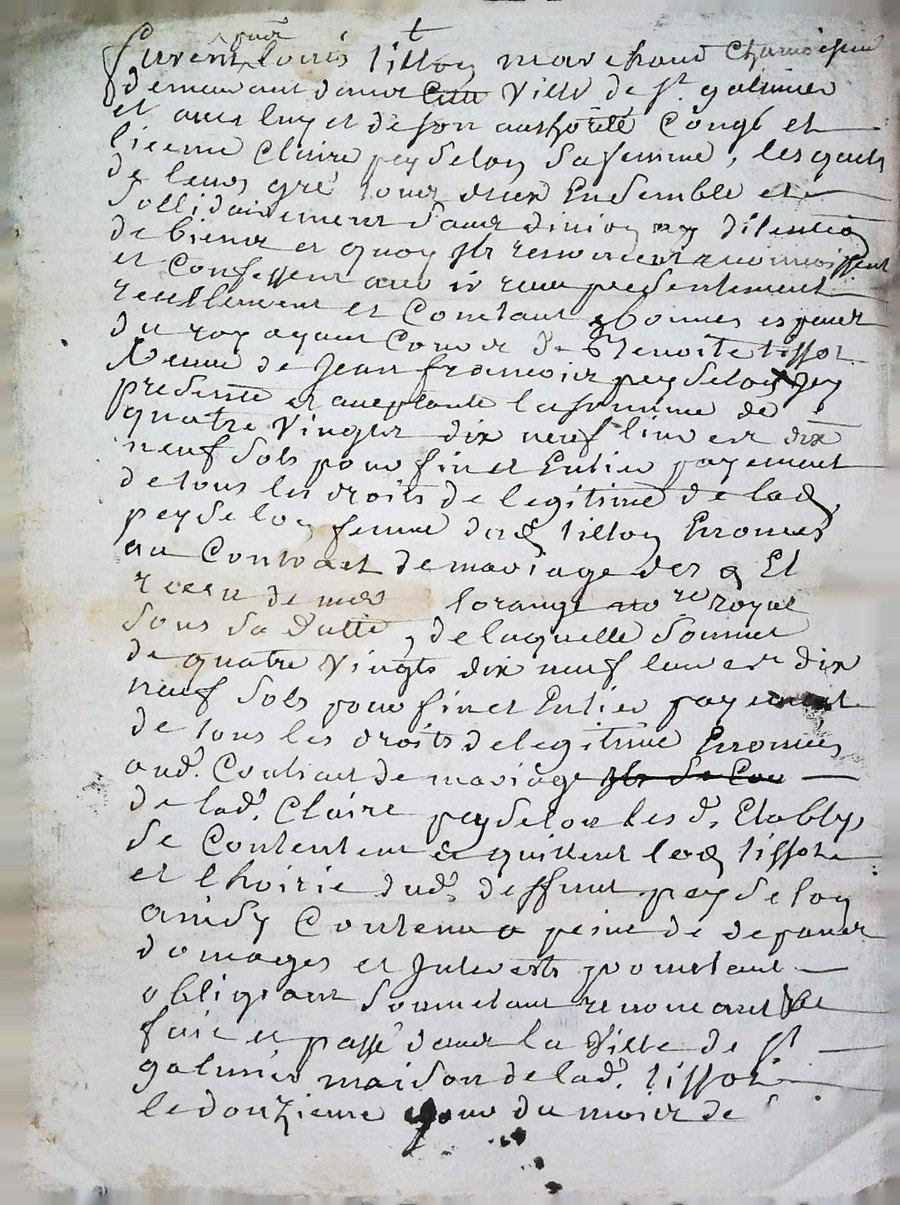 furent Louis tillon marchand Chamoiseur
demeurant dans cette Ville de st. galmier
et avec luy et de son authorité Congé et
licence Claire peyselon sa femme, lesquels
de leurs gré tous deux Ensemble et
sollidairement sans division ny dilention
de biens et quoy ils renoncent reconnoissent
et Confessent avoir receu presentement
reellement et Comtant en bonnes especes
du roy ayant Cours de Benoite tissot
Veuve de Jean francois peyselon Icy
presente et aceptante la somme de
quatre Vingts dix neuf livres dix
neuf sols pour fin et Entier payement
de tous les droits de legitime de lad
peyselon femme dud tillon Promis
au Contract de mariage des Et
receu de me lorange no re royal
sous sa datte, de laquelle somme
de quatre Vingts dix neuf livres dix
neuf sols pour fin et Entier payement
de tous les droits de legitime Promis
aud. Contract de mariage
de lad. Claire peyselon les d. Etably
se Contentent et quittent lad tissot
et lhoirie dud. deffunt peyselon
ainsy Contenu a peine de depans
domages et Interests prometant
obligeant soumetant renoncant &c
fait et passé dans la Ville de st
galmier maison de lad. tissot
le douzieme jour du mois de